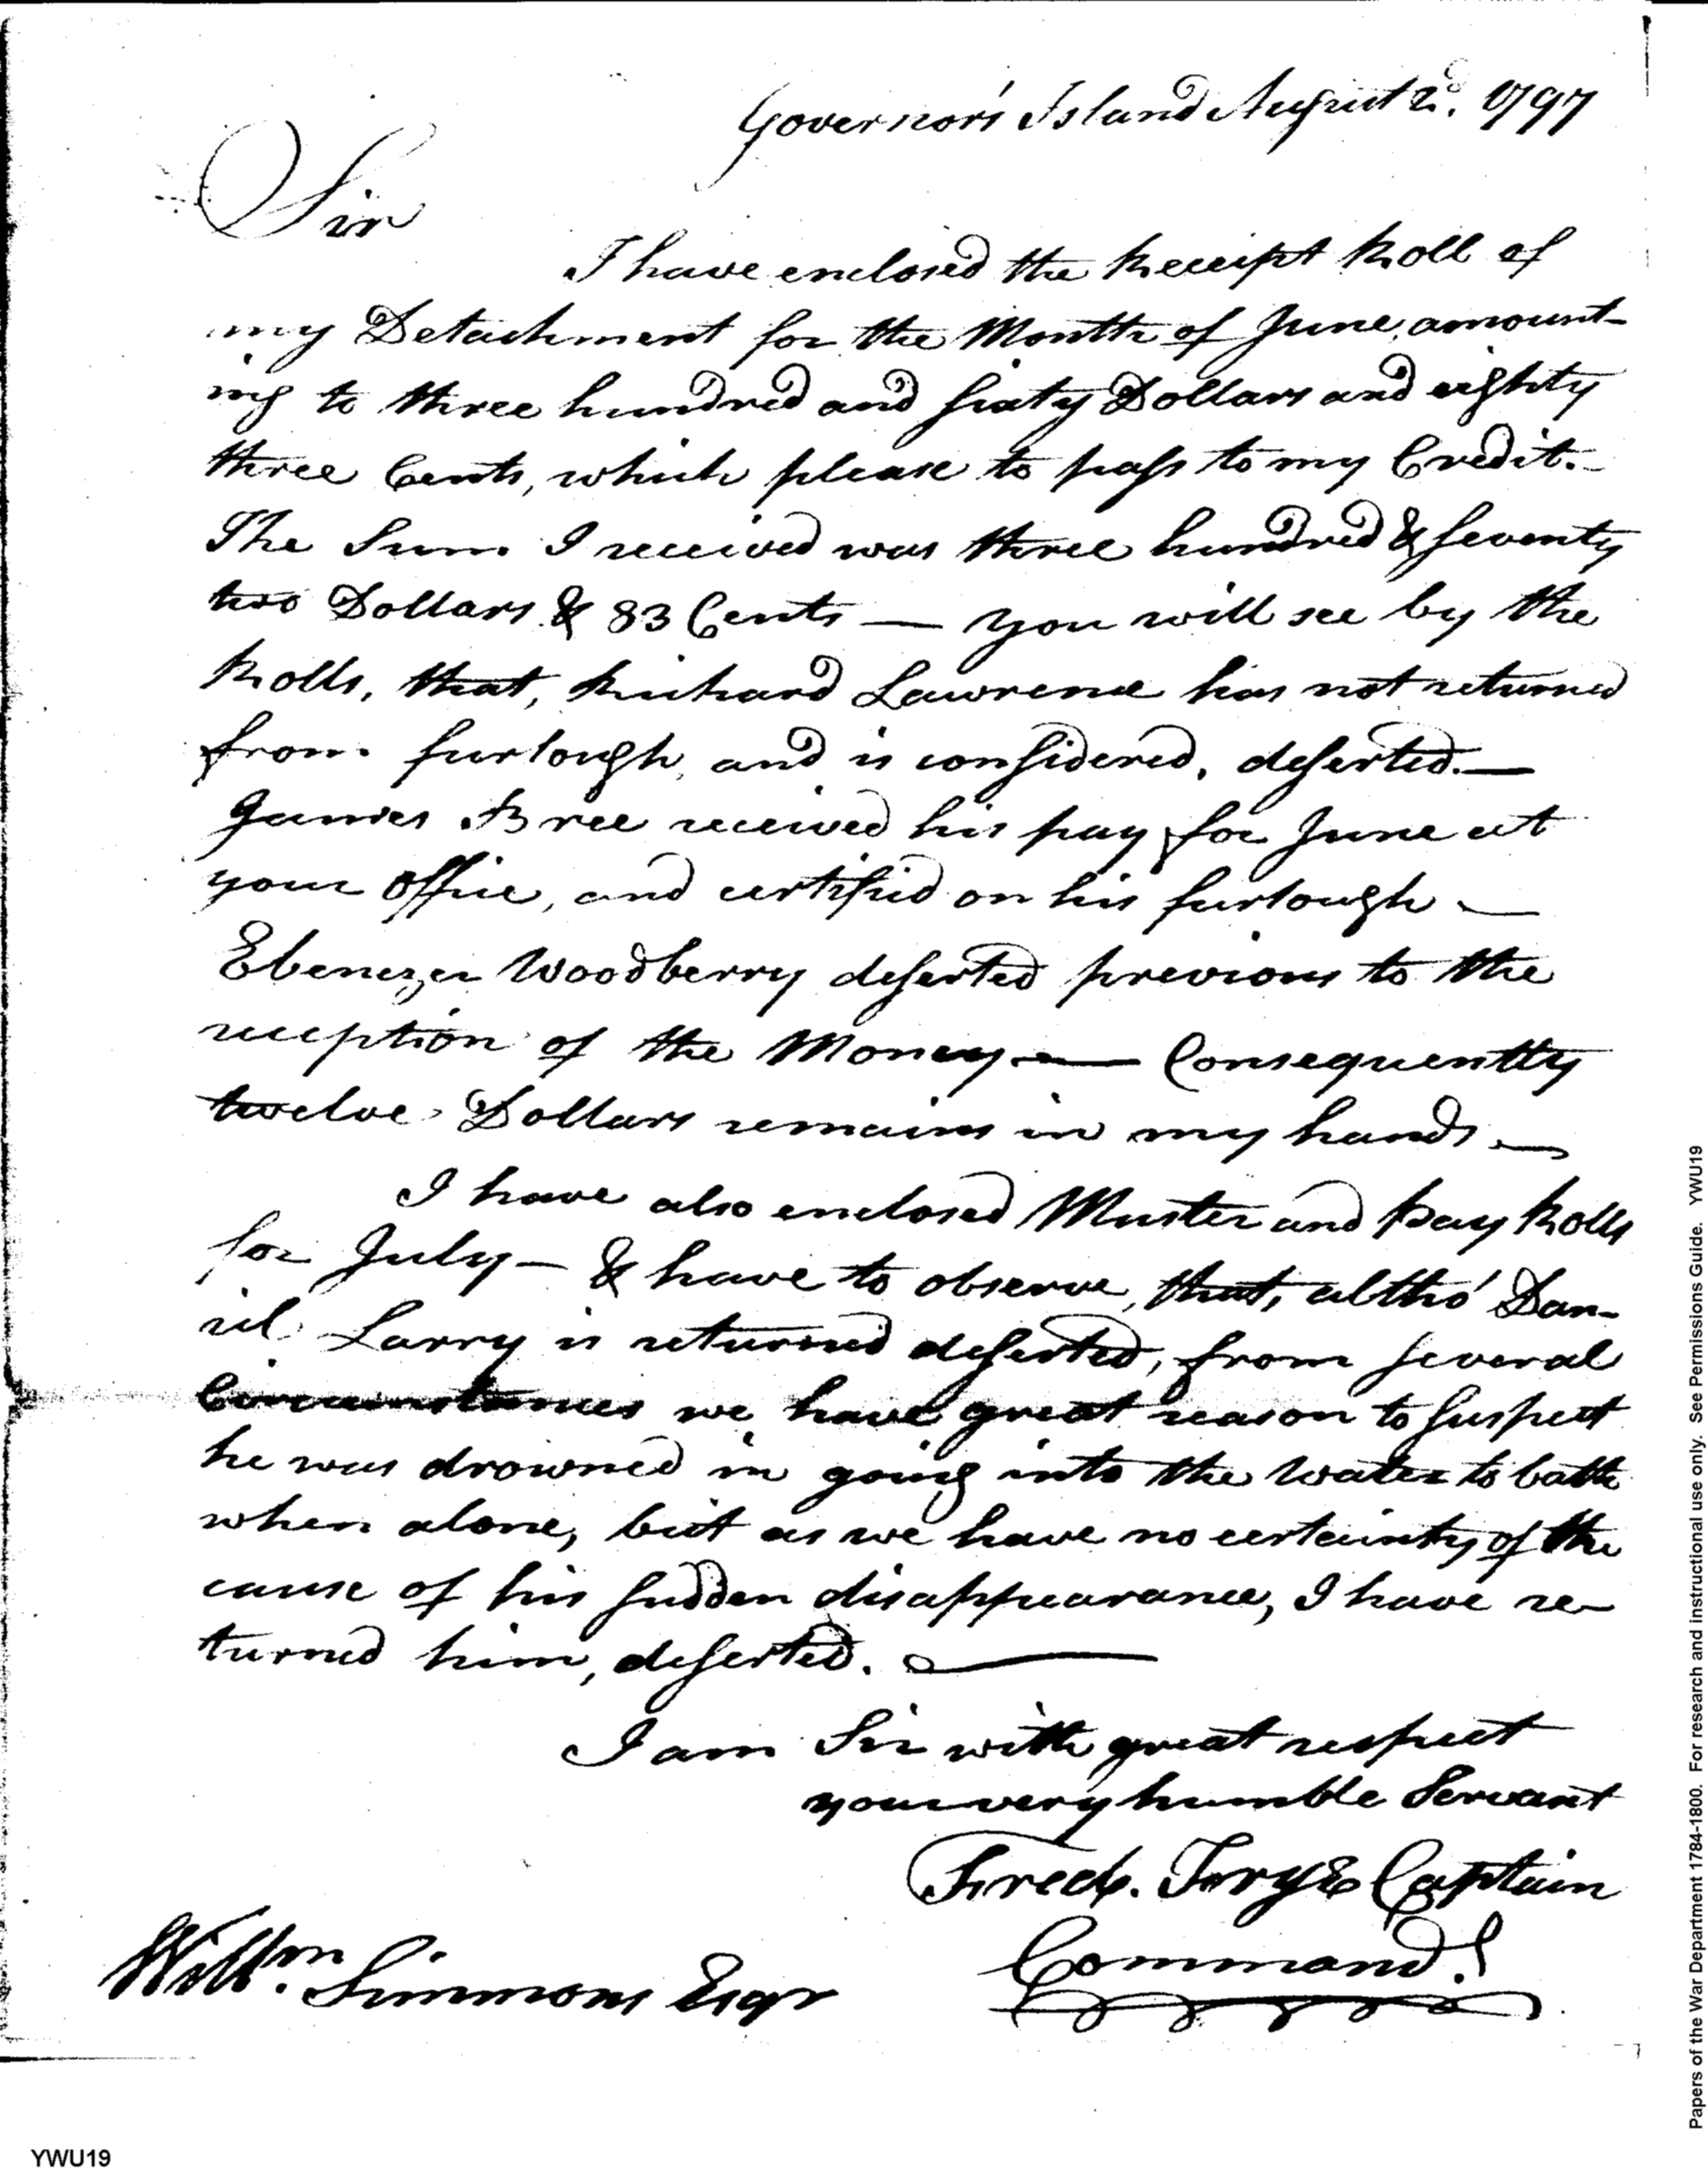 Governor's Island August 2d. 1797
Sir
I have enclosed the Receipt Roll of
my Detachment for the Month of June, amount-
ing to three hundred and sixty Dollars and eighty
three Cents, which please to pass to my Credit.-
The Sum I received was three hundred & seventy
two Dollars & 83 Cents — you will see by the
Rolls, that, Richard Lawrence has not returned
from furlough, and is considered, deserted.—
James Bree received his pay for June at
your office, and certified on his furlough —
Ebenezer Woodberry deserted previous to the
reception of the Money — Consequently
twelve Dollars remains in my hands —
I have also enclosed Muster and Pay Rolls
for July — & have to observe, that, altho' Dan-
iel Larry is returned deserted, from several
Circumstances we have great reason to suspect
he was drowned in going into the Water to bathe
when alone, but as we have no certainty of the
cause of his sudden disappearance, I have re-
turned him, deserted. —
I am Sir with great respect
your very humble Servant
Fredk. Frye Captain
Command.g
Willm. Simmons Esqr
YWU19
Papers of the War Department 1784-1800. For research and instructional use only. See Permissions Guide. YWU19